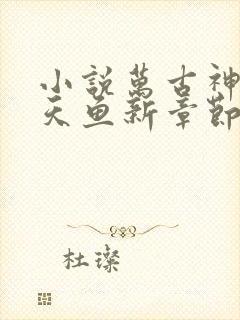 小說萬古神
天魚新章節
杜璨